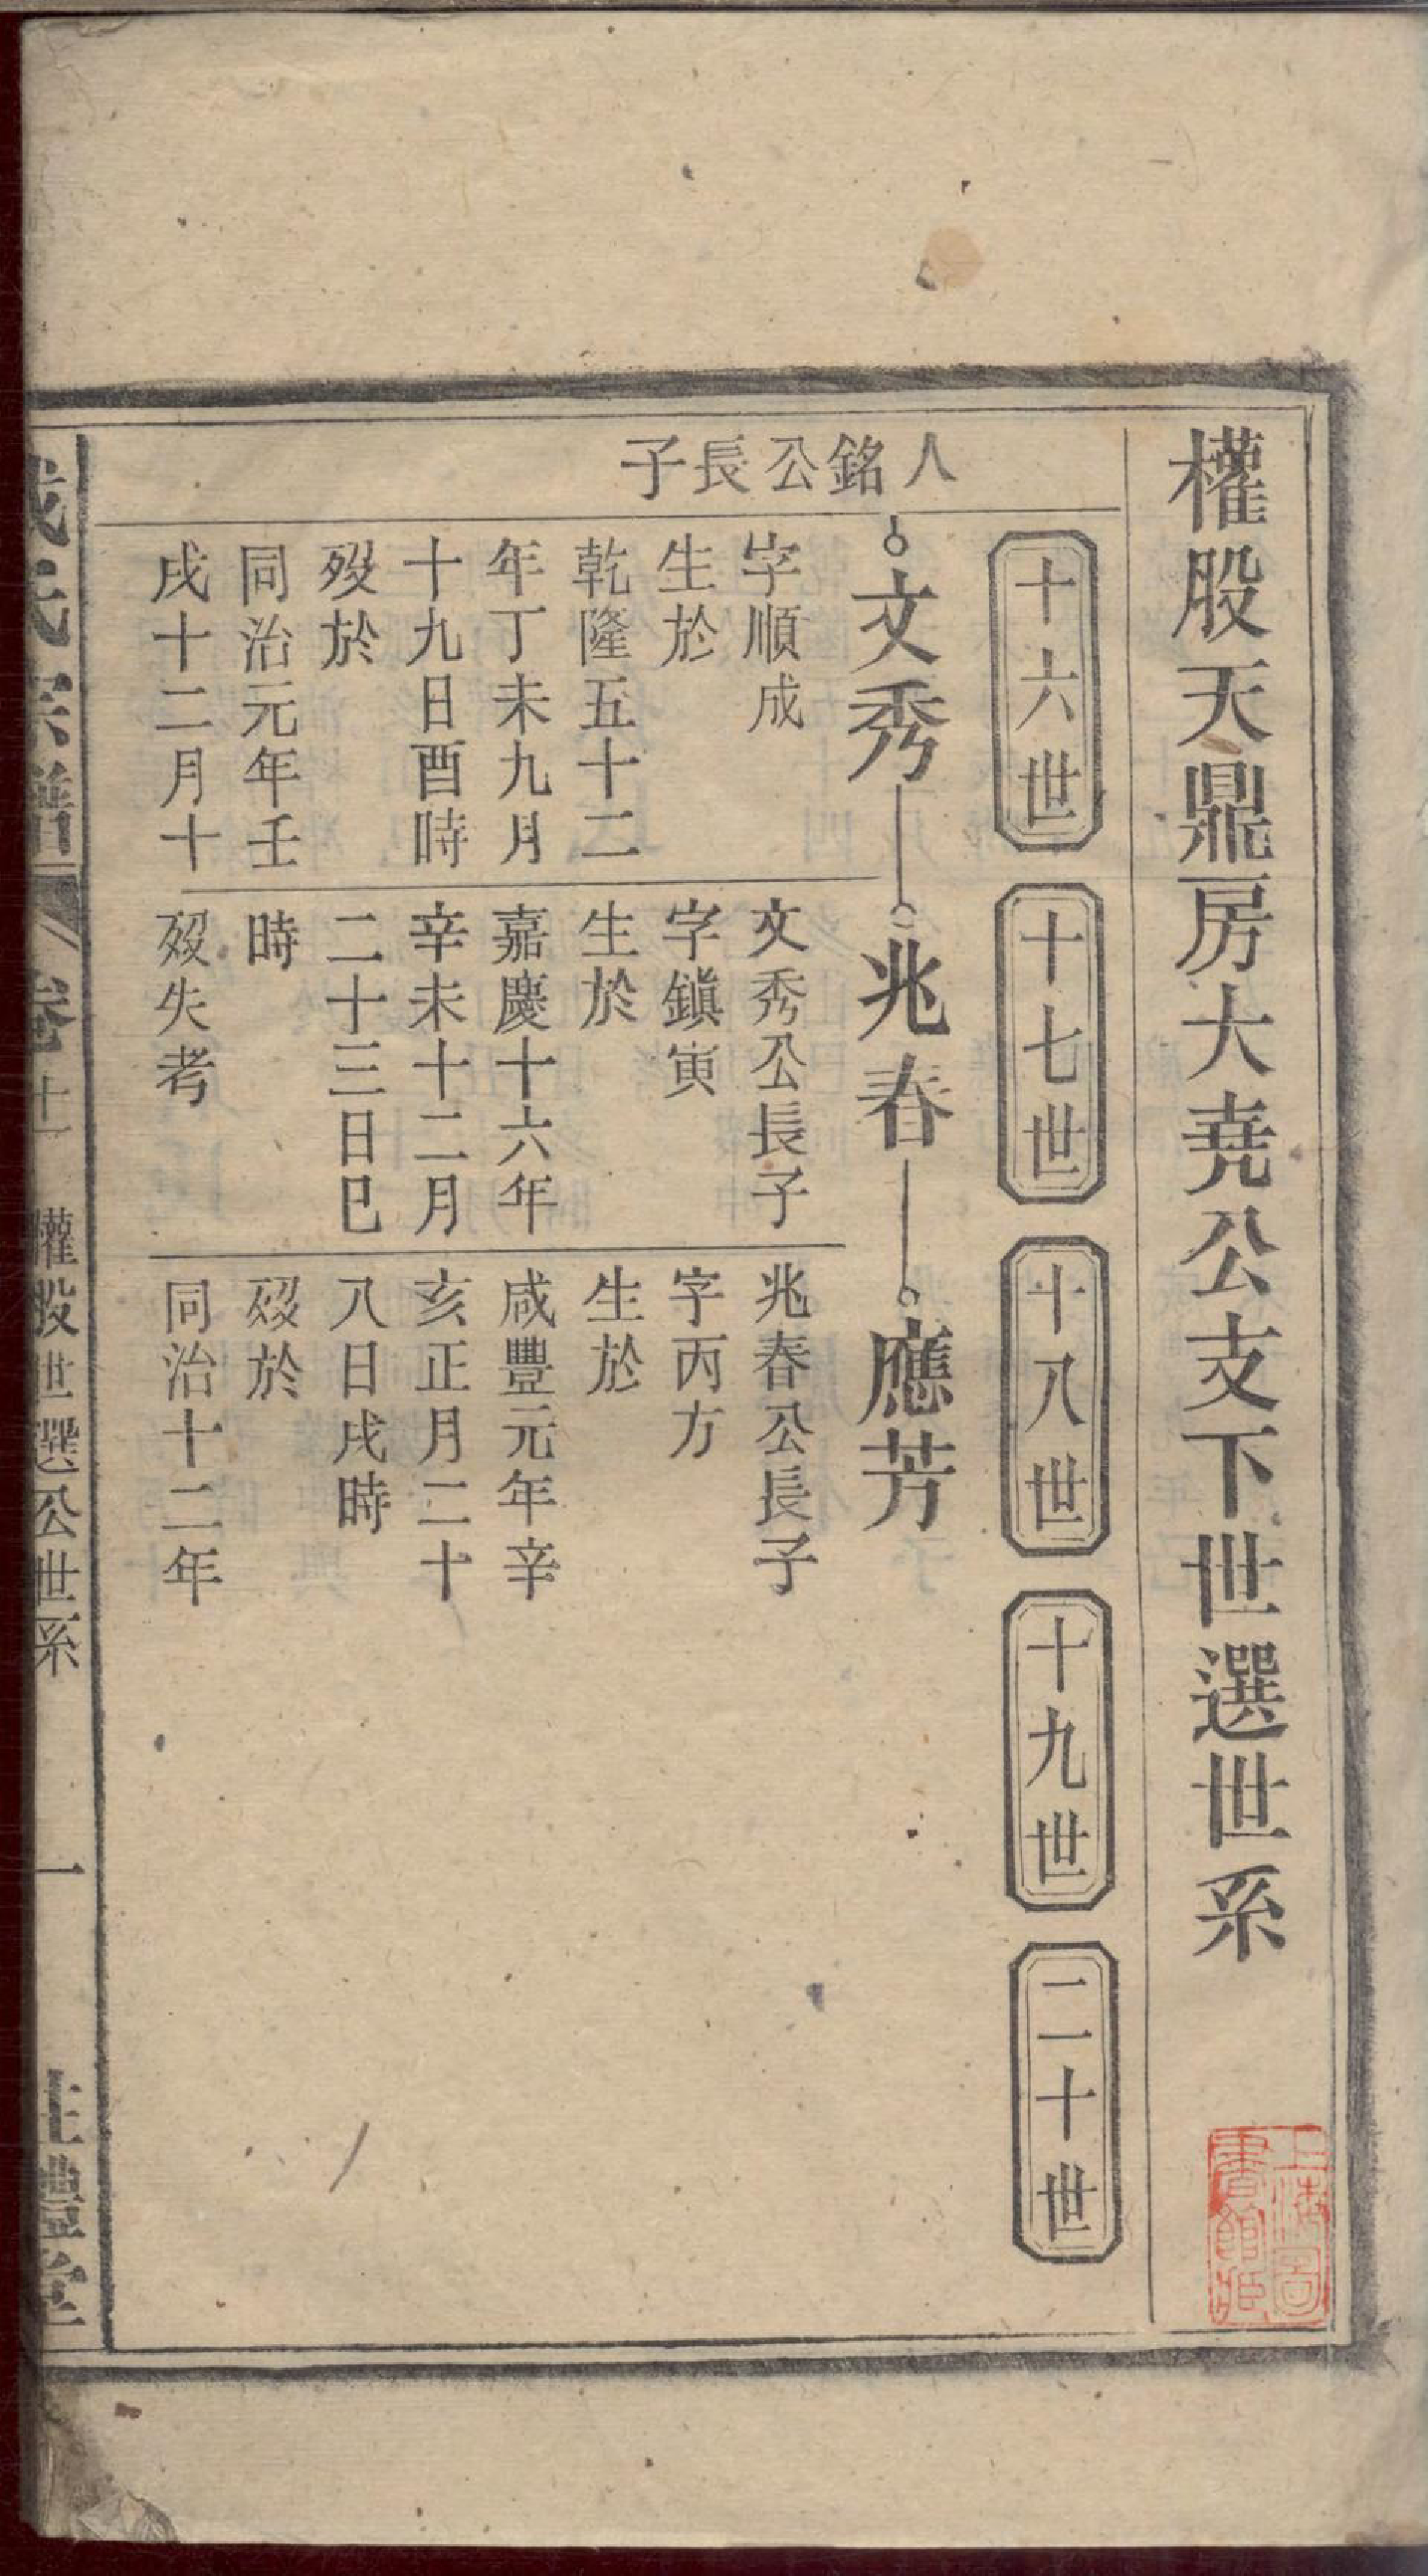 權股天鼎房大堯公支下世選世系
十六世
十七世
十八世
十九世
二十世
人銘公長子
文秀
字順成
生於
乾隆五十二
年丁未九月
十九日酉時
歿於
同治元年壬
戌十二月十
兆春
文秀公長子
字鎮寅
生於
嘉慶十六年
辛未十二月
二十三日巳
時
歿失考
應芳
兆春公長子
字丙方
生於
咸豐元年辛
亥正月二十
八日戌時
歿於
同治十二年
氏宗譜
卷十一
權股世選公世系
一
禮堂
上海圖
書館藏